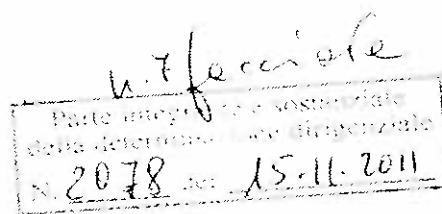 n. 7 facciate
Parte integrante e sostanziale
della determinazione dirigenziale
N. 2078 del 15.11.2011